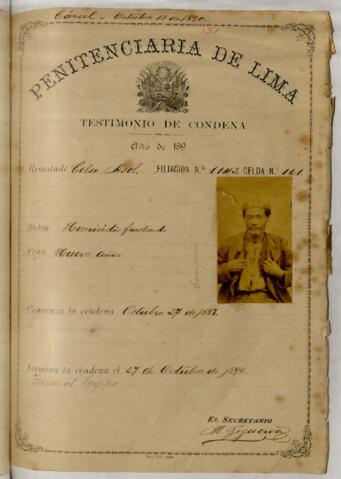 Cárcel - Octubre 13 de 1890.
131
PENITENCIARIA DE LIMA
TESTIMONIO DE CONDENA
Año de 189
Rematado Asol. FILIACION N.º CELDA N.º 161
Delito Homicidio
Pena Nueve años
Comienza la condena Octubre 27 de 1887.
Termina la condena el 27 de Octubre de 1896.
EL SECRETARIO
M. Figueroa